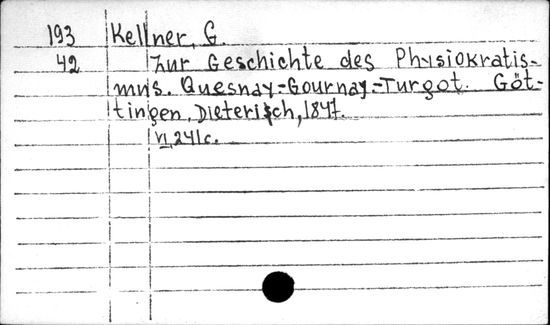 193 Kellner, G.
42 Zur Geschichte des Physiokratis-
mus. Quesnay-Gournay-Turgot. Göt-
tingen, Dieterisch, 1847.
VI, 241c.